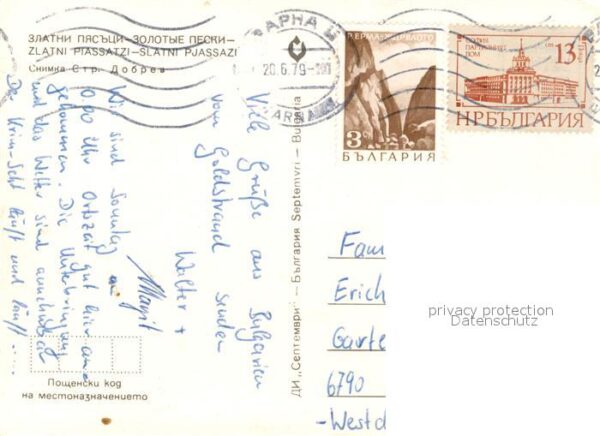 ЗЛАТНИ ПЯСЪЦИ-ЗОЛОТЫЕ ПЕСКИ-
ZLATNI PIASSATZI-SLATNI PJASSAZI
Снимка Стр. Добрев
Wir sind Sonntag
Uhr Ortszeit gut hier an-
gekommen. Die Unterbringung
und das Wetter sind
Der Krim-Sekt läuft und läuft ....
Viele Grüße aus Bulgarien
vom Goldstrand senden
Walter +
Margit
Пощенски код
на местоназначението
ДИ „Септември" — България Septemvri — Bulgaria
ВАРНА
20.6.79
VARNA
3
БЪЛГАРИЯ
ПАРТИЙНИЯТ
ДОМ
13
НРБЪЛГАРИЯ
Fam
Erich
Garte
6790
-Westd
privacy protection
Datenschutz